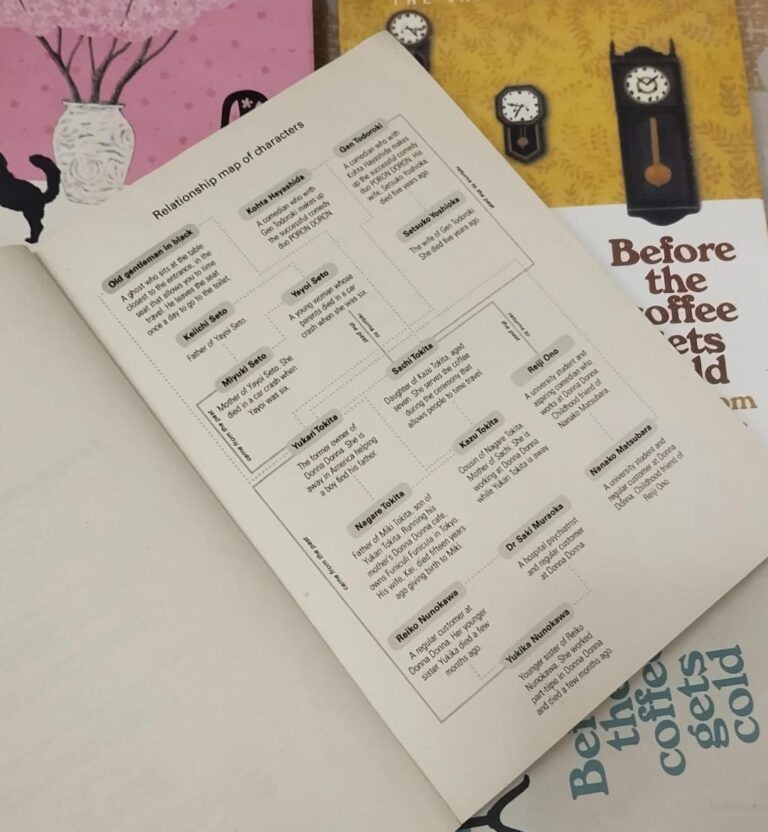 Relationship map of characters
Old gentleman in black
A ghost who sits at the table
closest to the entrance, in the
seat that allows you to time
travel. He leaves the seat
once a day to go to the toilet.
Kohta Hayashida
A comedian who with
Gen Todoroki makes up
the successful comedy
duo PORON DORON.
Gen Todoroki
A comedian who with
Kohta Hayashida makes
up the successful comedy
duo PORON DORON. His
wife, Setsuko Yoshioka,
died five years ago.
Setsuko Yoshioka
The wife of Gen Todoroki.
She died five years ago.
Keiichi Seto
Father of Yayoi Seto.
Yayoi Seto
A young woman whose
parents died in a car
crash when she was six.
Miyuki Seto
Mother of Yayoi Seto. She
died in a car crash when
Yayoi was six.
Sachi Tokita
Daughter of Kazu Tokita, aged
seven. She serves the coffee
during the ceremony that
allows people to time travel.
Reiji Ono
A university student and
aspiring comedian who
works at Donna Donna.
Childhood friend of
Nanako Matsubara.
Yukari Tokita
The former owner of
Donna Donna. She is
away in America helping
a boy find his father.
Kazu Tokita
Cousin of Nagare Tokita.
Mother of Sachi. She is
working at Donna Donna
while Yukari Tokita is away.
Nanako Matsubara
A university student and
regular customer at Donna
Donna. Childhood friend of
Reiji Ono
Nagare Tokita
Father of Miki Tokita, son of
Yukari Tokita. Running his
mother's Donna Donna cafe,
owns Funiculi Funicula in Tokyo.
His wife, Kei, died fifteen years
ago giving birth to Miki.
Dr Saki Muraoka
A hospital psychiatrist
and regular customer
at Donna Donna
Reiko Nunokawa
A regular customer at
Donna Donna. Her younger
sister Yukika died a few
months ago.
Yukika Nunokawa
Younger sister of Reiko
Nunokawa. She worked
part-time in Donna Donna
and died a few months ago.
came from the past
came from the past
Before
the
coffee
gets
cold
Before
the
coffee
gets
cold